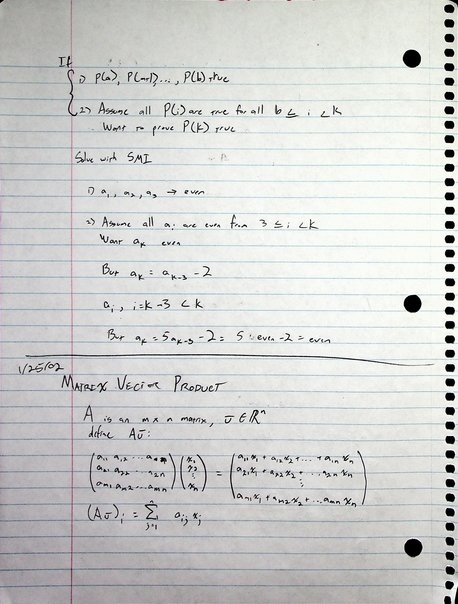 If
1) P(a), P(a+1), ..., P(b) true
2) Assume all P(i) are true for all b ≤ i < k
Want to prove P(k) true
Solve with SMI
1) a₁, a₂, a₃ → even
2) Assume all aᵢ are even from 3 ≤ i < k
Want aₖ even
But aₖ = aₖ₋₃ - 2
aᵢ, i = k-3 < k
But aₖ = 5aₖ₋₃ - 2 = 5·even - 2 = even
1/25/02
MATRIX VECTOR PRODUCT
A is an m x n matrix, v ∈ ℝⁿ
define Av:
(a₁₁ a₁₂ ... a₁ₙ) (x₁) = (a₁₁x₁ + a₁₂x₂ + ... + a₁ₙxₙ)
(a₂₁ a₂₂ ... a₂ₙ) (x₂) (a₂₁x₁ + a₂₂x₂ + ... a₂ₙxₙ)
⋮ ⋮
(aₘ₁ aₘ₂ ... aₘₙ) (xₙ) (aₘ₁x₁ + aₘ₂x₂ + ... aₘₙxₙ)
(Av)ᵢ = Σⁿⱼ₌₁ aᵢⱼ xⱼ